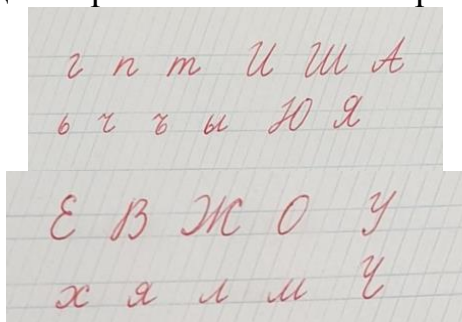 г п т И Ш А
ь ч ъ ы Ю Я
Е В Ж О У
х я л м Ч